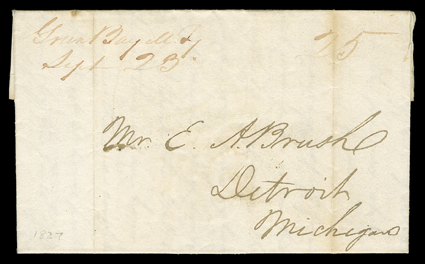 Green Bay M. Ty 25
Sept 23
Mr. E. A. Brush
Detroit
Michigan
1827